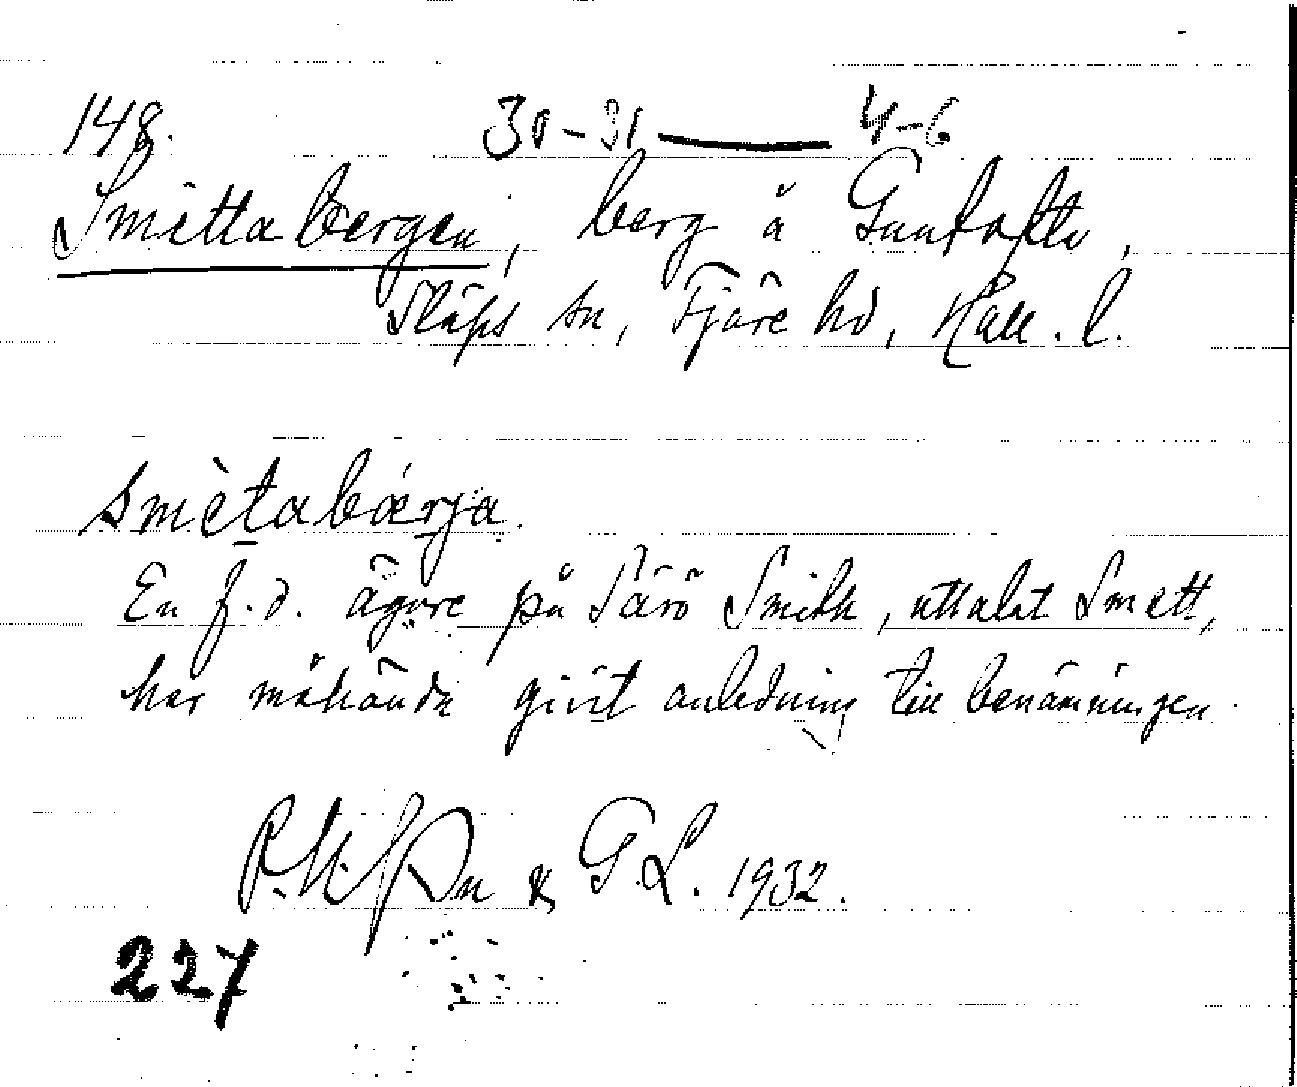 148. 30-31 — 4-6
Smittabergen, berg å Guntofta,
Släps sn, Fjäre hd, Hall. l.
smètabærja.
En f.d. ägare på Särö Smith, uttalat Smett,
har måhända givit anledning till benämningen.
& G.L. 1932.
227